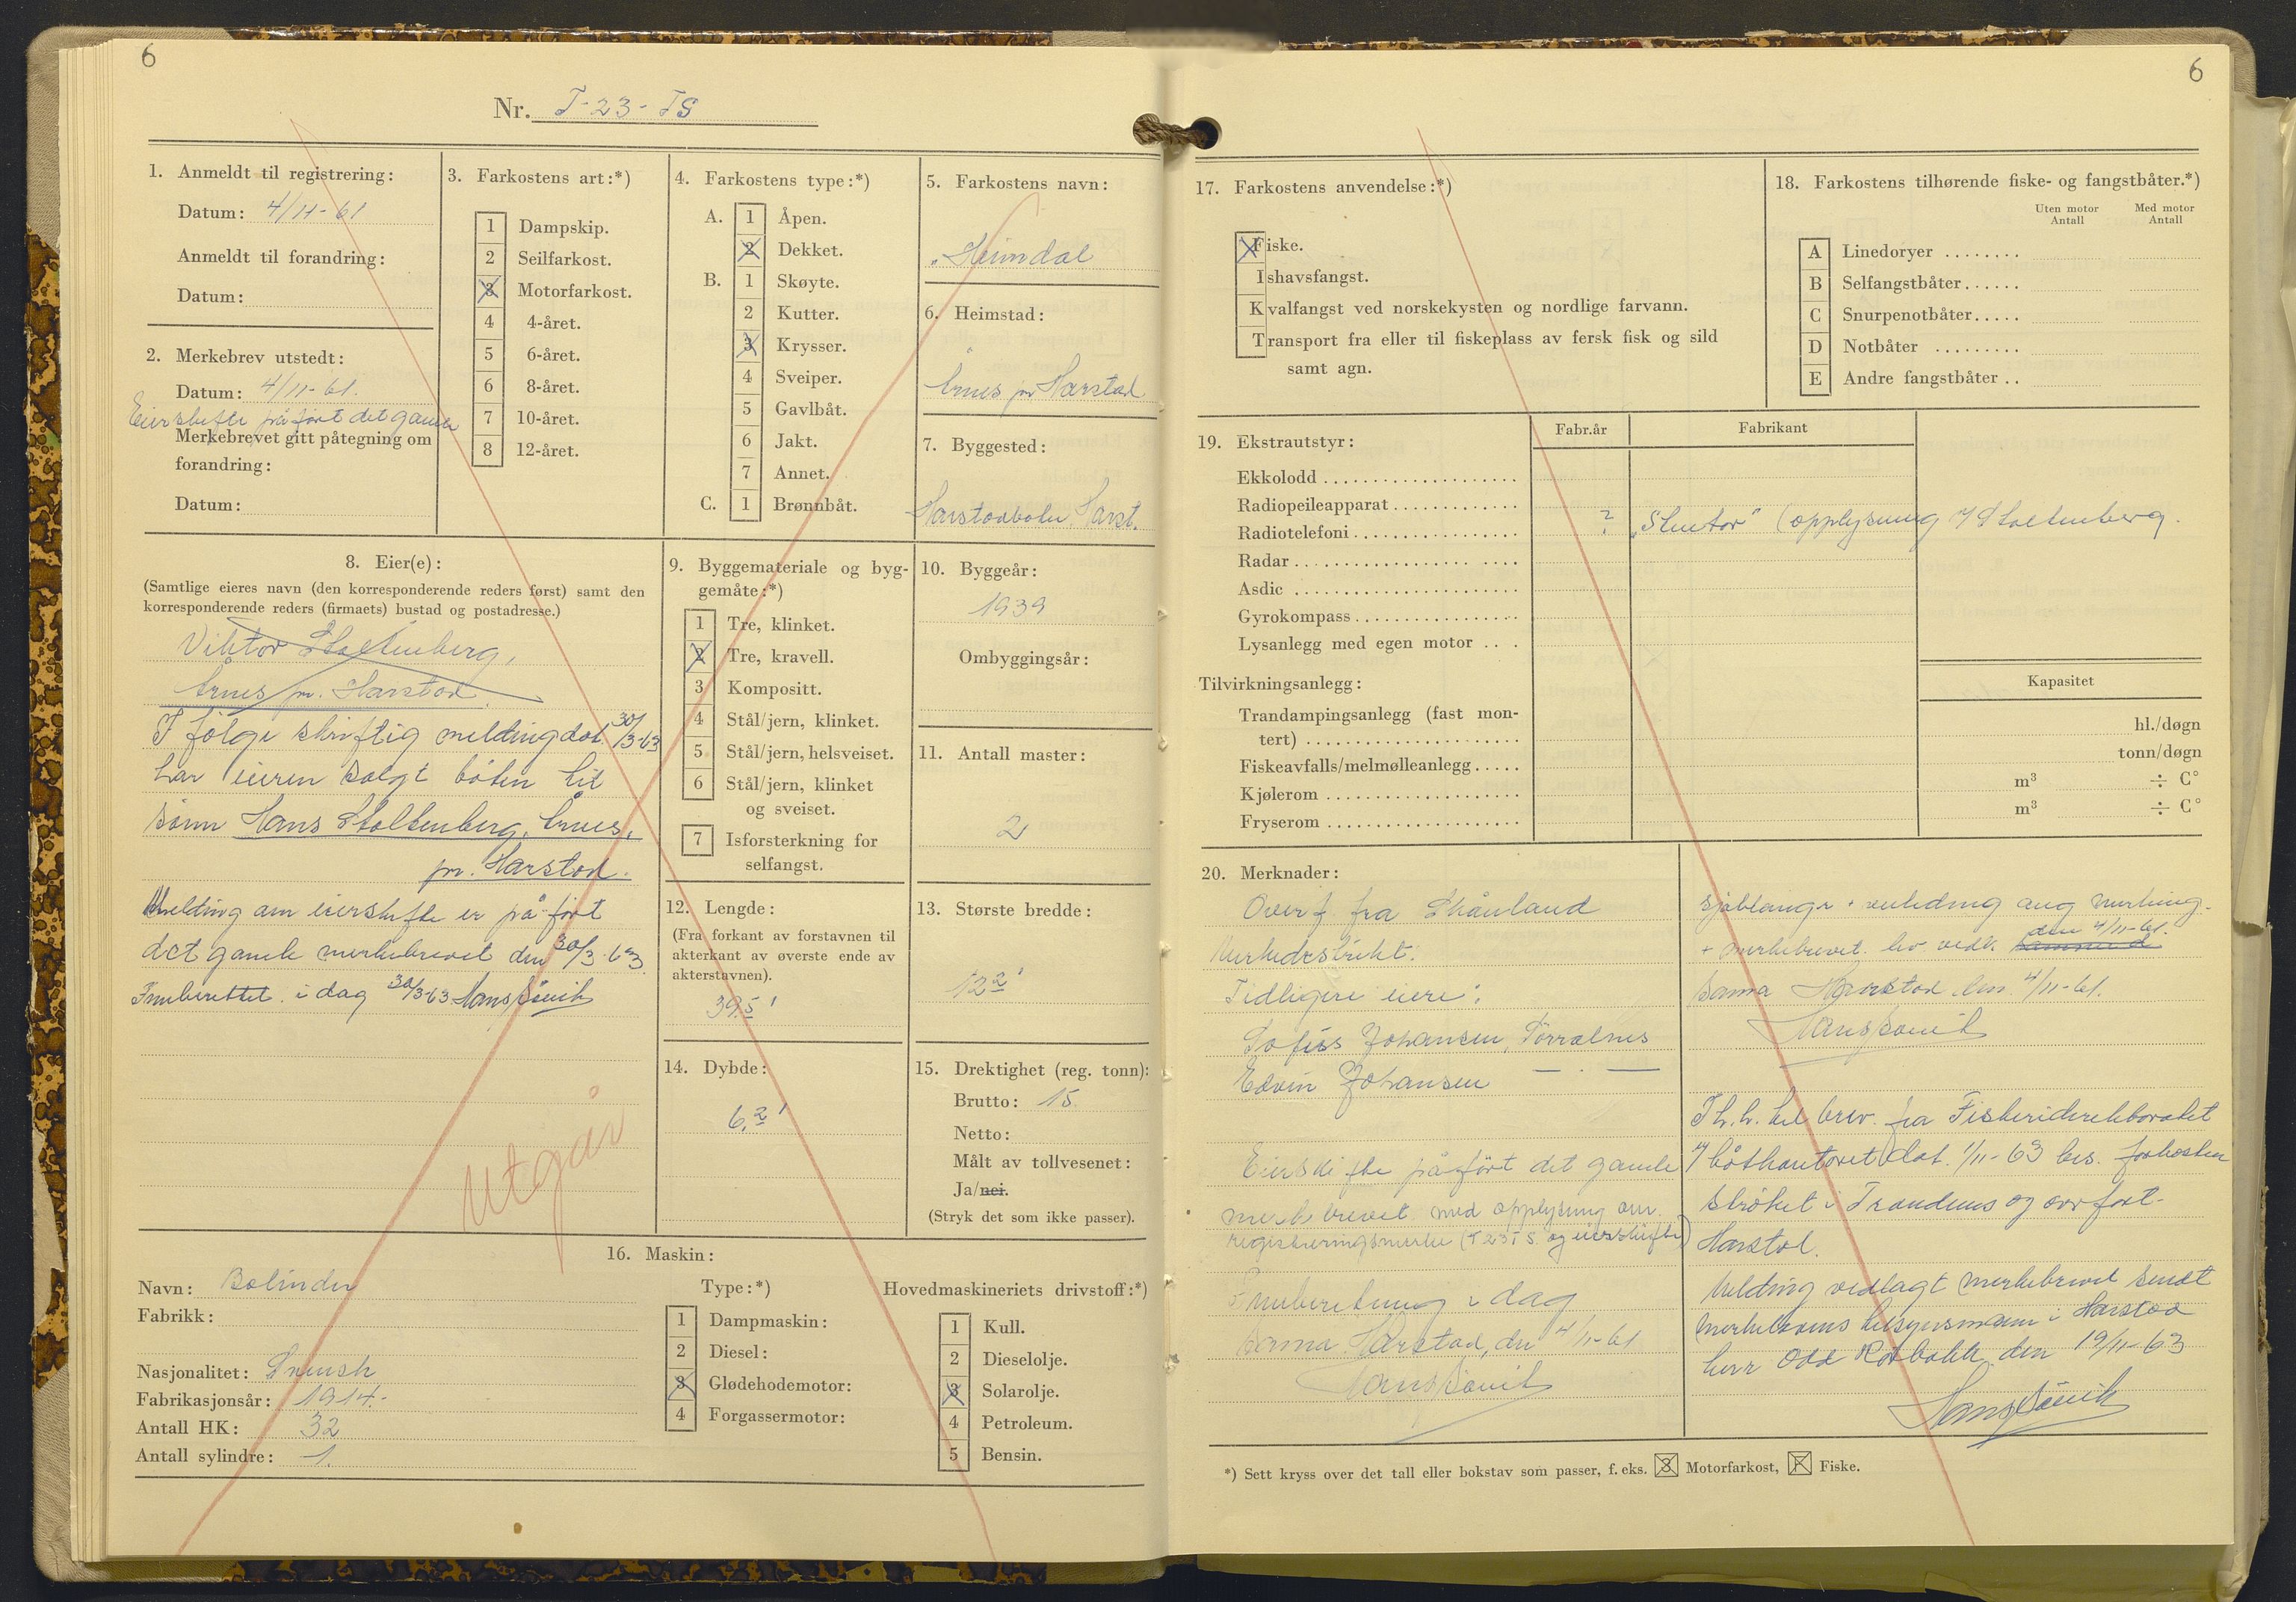 6
Nr. T-23-TS
1. Anmeldt til registrering:
Datum: 4/11-61
Anmeldt til forandring:
Datum:
2. Merkebrev utstedt:
Datum: 4/11-61.
Eierskifte påført det gamle
Merkebrevet gitt påtegning om
forandring:
Datum:
3. Farkostens art:*)
1 Dampskip.
2 Seilfarkost.
3 Motorfarkost.
4 4-året.
5 6-året.
6 8-året.
7 10-året.
8 12-året.
4. Farkostens type:*)
A. 1 Åpen.
2 Dekket.
B. 1 Skøyte.
2 Kutter.
3 Krysser.
4 Sveiper.
5 Gavlbåt.
6 Jakt.
7 Annet.
C. 1 Brønnbåt.
5. Farkostens navn:
"Heimdal
6. Heimstad:
Årnes pr Harstad
7. Byggested:
Harstadbotn, Harst.
8. Eier(e):
(Samtlige eieres navn (den korresponderende reders først) samt den
korresponderende reders (firmaets) bustad og postadresse.)
Viktor Stoltenberg,
Årnes pr. Harstad.
I følge skriftlig melding dat. 30/3-63
har eieren solgt båten til
sønn Hans Stoltenberg, Årnes,
pr. Harstad.
Melding om eierskifte er på-ført
det gamle merkebrevet den 30/3-63.
Innberettet i dag 30/3-63 Hans Søvik
9. Byggemateriale og byg-
gemåte:*)
1 Tre, klinket.
2 Tre, kravell.
3 Kompositt.
4 Stål/jern, klinket.
5 Stål/jern, helsveiset.
6 Stål/jern, klinket
og sveiset.
7 Isforsterkning for
selfangst.
10. Byggeår:
1939
Ombyggingsår:
11. Antall master:
2
12. Lengde:
(Fra forkant av forstavnen til
akterkant av øverste ende av
akterstavnen).
39.5'
13. Største bredde:
12.2'
14. Dybde:
6.2'
15. Drektighet (reg. tonn):
Brutto: 15
Netto:
Målt av tollvesenet:
Ja/nei.
(Stryk det som ikke passer).
Utgår
16. Maskin:
Navn: Bolinder
Fabrikk:
Nasjonalitet: Svensk
Fabrikasjonsår: 1914.-
Antall HK: 32
Antall sylindre: 1.
Type:*)
1 Dampmaskin:
2 Diesel:
3 Glødehodemotor:
4 Forgassermotor:
Hovedmaskineriets drivstoff:*)
1 Kull.
2 Dieselolje.
3 Solarolje.
4 Petroleum.
5 Bensin.
6
17. Farkostens anvendelse:*)
Fiske.
Ishavsfangst.
Kvalfangst ved norskekysten og nordlige farvann.
Transport fra eller til fiskeplass av fersk fisk og sild
samt agn.
18. Farkostens tilhørende fiske- og fangstbåter.*)
Uten motor Antall
Med motor Antall
A Linedoryer ........
B Selfangstbåter......
C Snurpenotbåter.....
D Notbåter .........
E Andre fangstbåter ..
19. Ekstrautstyr:
Fabr.år
Fabrikant
Ekkolodd ....................
Radiopeileapparat .............
Radiotelefoni ................. ? "Simtor" (opplysning v/Stoltenberg.
Radar .................. ....
Asdic .......................
Gyrokompass .................
Lysanlegg med egen motor .. .
Tilvirkningsanlegg:
Kapasitet
Trandampingsanlegg (fast mon-
tert) ...................... hl./døgn
Fiskeavfalls/melmølleanlegg ..... tonn/døgn
Kjølerom .................... m³ ÷ C°
Fryserom .................... m³ ÷ C°
20. Merknader:
Overf. fra Skånland
Merkedistrikt.
Tidligere eiere:
Sofus Johansen, Torralnes
Edvin Johansen — . —
Eierskifte påført det gamle
merkebrevet med opplysning om
registreringsmerke (T23TS. og eierskifte)
Innberetning i dag
Sama Harstad, den 4/11-61
Hans Søvik
Sjablanger + veiledning ang merking.
+ merkebrevet. lev. vedk. den 4/11-61.
Sama Harstad den 4/11-61.
Hans Søvik
I h.h. til brev. fra Fiskeridirektoratet
v/båtkontoret dat. 1/11-63 bes. farkosten
strøket i Trondenes og overført
Harstad.
Melding vedlagt merkebrevet sendt
merkelovens tilsynsmann i Harstad
herr Odd Rotbakk den 19/11-63
Hans Søvik
*) Sett kryss over det tall eller bokstav som passer, f. eks. 3 Motorfarkost, F Fiske.